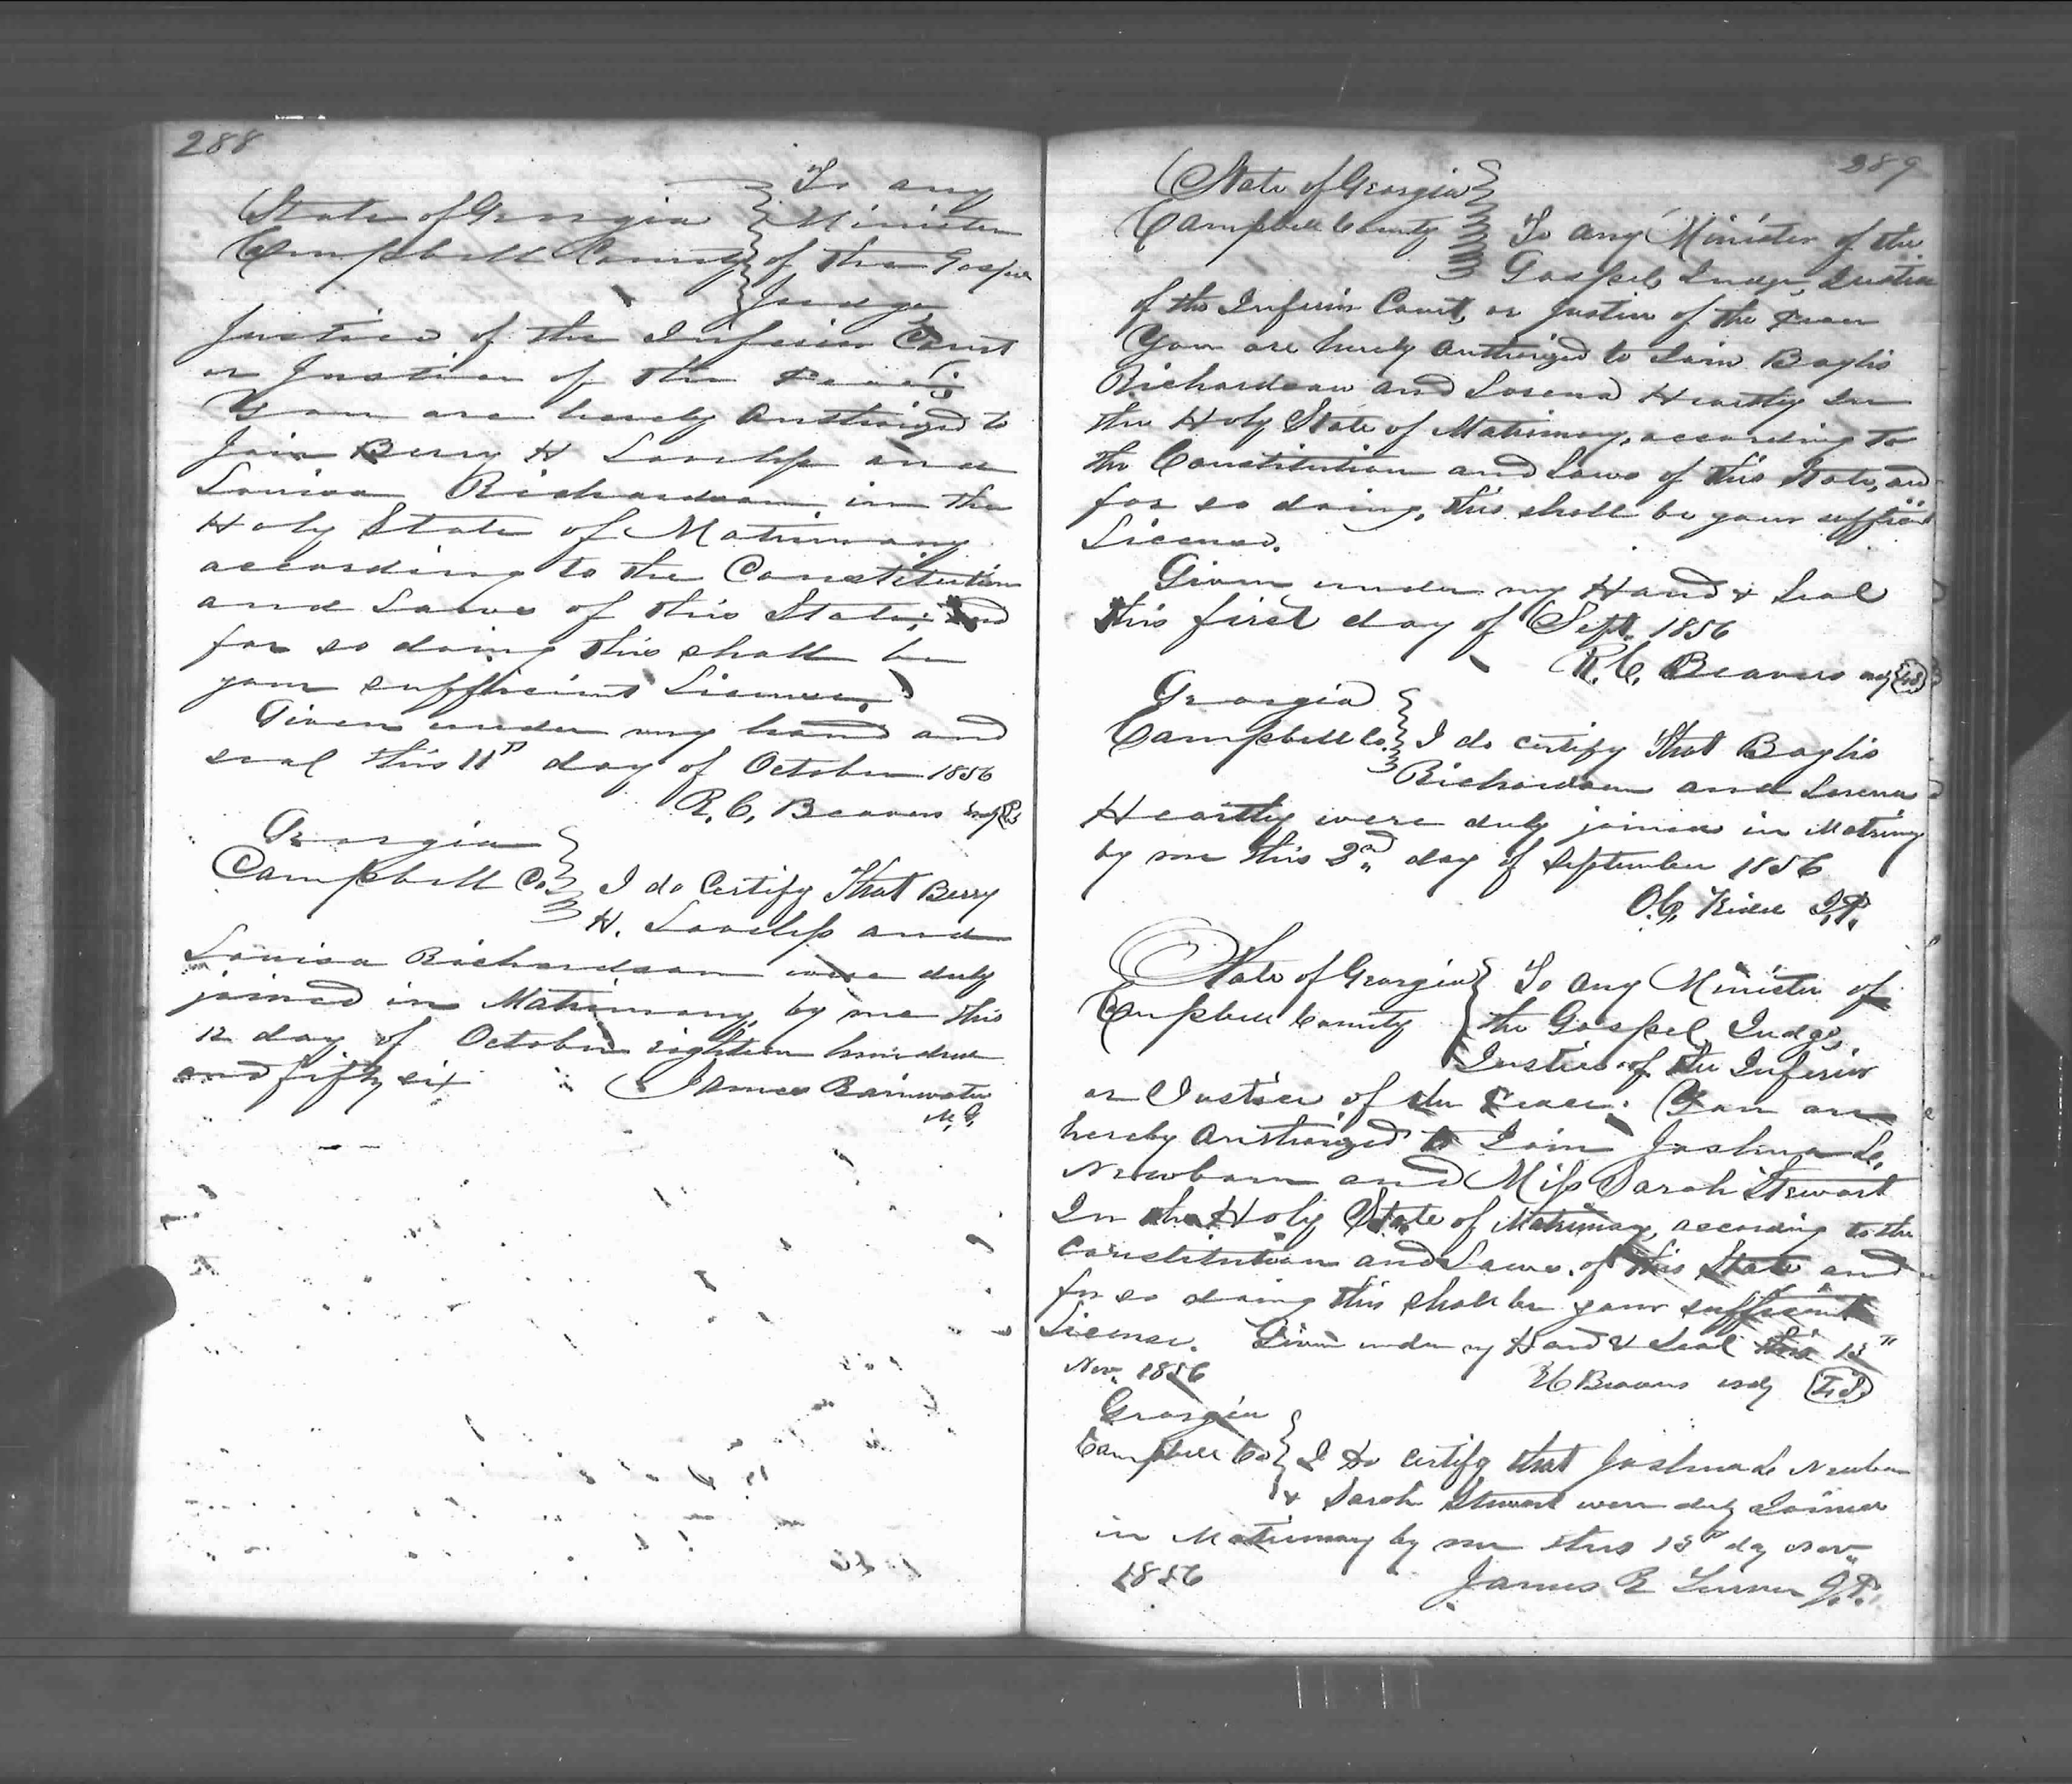 288
To any
State of Georgia Minister
Campbell County of the Gospel
Judge
Justice of the Inferior Court
or Justice of the Peace:
You are hereby Authorized to
Join Berry H Lovelass and
Louisa Richardson in the
Holy State of Matrimony
according to the Constitution
and Laws of this State; and
for so doing this shall be
your sufficient License.
Given under my hand and
seal this 11th day of October 1856
R. C. Beavers
Georgia
Campbell Co. I do Certify That Berry
H. Lovelass and
Louisa Richardson were duly
joined in Matrimony, by me this
12 day of October eighteen hundred
and fifty six James Rainwater
M. G.
289
State of Georgia
Campbell County To any Minister of the
Gospel, Judge, Justice
of the Inferior Court, or Justice of the Peace
You are hereby Authorized to Join Baylis
Richardson and Lorena Heartly In
the Holy State of Matrimony, according to
the Constitution and Laws of this State, and
for so doing, this shall be your sufficient
License.
Given under my Hand & Seal
this first day of Sept. 1856
R. C. Beavers ordy LS
Georgia
Campbell Co. I do certify That Baylis
Richardson and Lorena
Heartly were duly joined in Matrimony
by me this day of September 1856
O. C. J.P.
State of Georgia To any Minister of
Campbell County the Gospel, Judge,
Justice of the Inferior
or Justice of the Peace: You are
hereby Authorized to Join Joshua L.
Newborn and Miss Sarah Stewart
In the Holy State of Matrimony, according to the
Constitution and Laws of this State and
for so doing this shall be your sufficient
License. Given under my Hand & Seal this 13th
Nov. 1856 R C Beavers ordy L.S.
Georgia
Campbell Co I do certify that Joshua L Newborn
& Sarah Stewart were duly Joined
in Matrimony by me this 13th day Nov.
1856 James R Turner J.P.